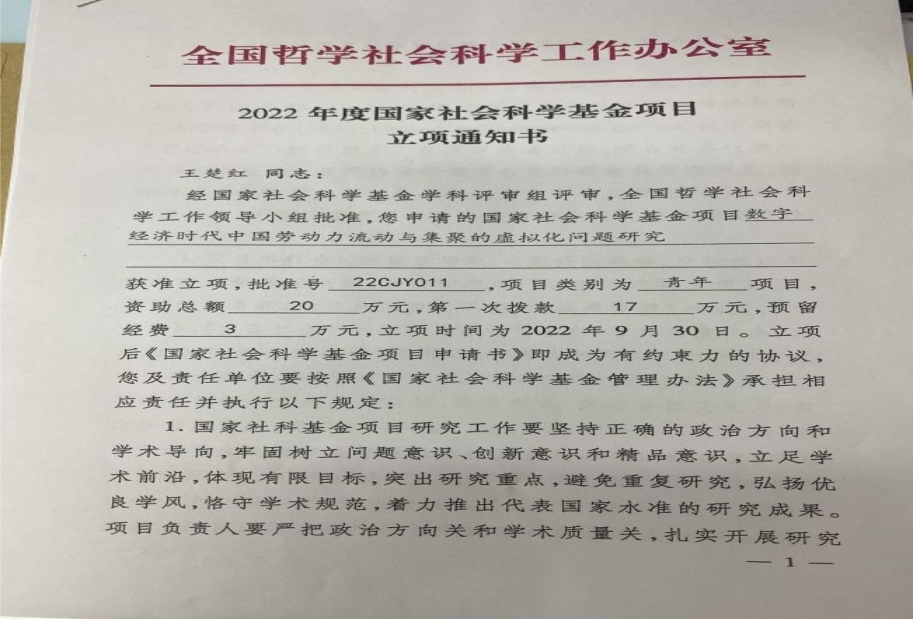 全国哲学社会科学工作办公室
2022 年度国家社会科学基金项目
立项通知书
王楚红 同志：
经国家社会科学基金学科评审组评审，全国哲学社会科
学工作领导小组批准，您申请的国家社会科学基金项目数字
经济时代中国劳动力流动与集聚的虚拟化问题研究
获准立项，批准号 22CJY011 ，项目类别为 青年 项目，
资助总额 20 万元，第一次拨款 17 万元，预留
经费 3 万元，立项时间为 2022 年 9 月 30 日。立项
后《国家社会科学基金项目申请书》即成为有约束力的协议，
您及责任单位要按照《国家社会科学基金管理办法》承担相
应责任并执行以下规定：
1. 国家社科基金项目研究工作要坚持正确的政治方向和
学术导向，牢固树立问题意识、创新意识和精品意识，立足学
术前沿，体现有限目标，突出研究重点，避免重复研究，弘扬优
良学风，恪守学术规范，着力推出代表国家水准的研究成果。
项目负责人要严把政治方向关和学术质量关，扎实开展研究
— 1 —